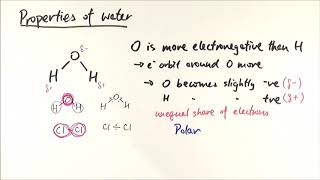 Properties of water
O δ-
H H
δ+ δ+
O is more electronegative than H
→ e⁻ orbit around O more
→ O becomes slightly -ve (δ-)
H " " +ve (δ+)
unequal share of electrons
Polar
H O H H O H
Cl Cl Cl ÷ Cl